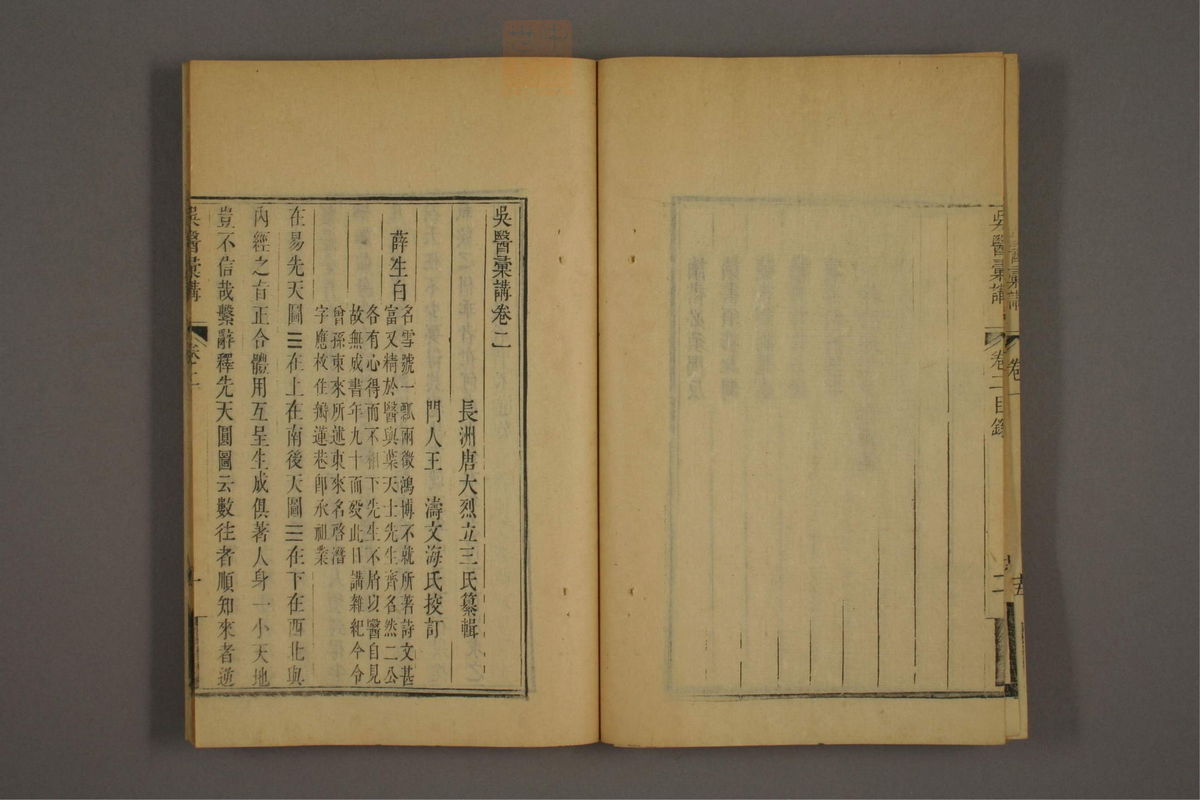 吳醫彙講
卷一
吳醫彙講
卷二目錄
二
吳醫彙講卷二
長洲唐大烈立三氏纂輯
門人王濤文海氏挍訂
薛生白
名雪號一瓢兩徵鴻博不就所著詩文甚
富又精於醫與葉天士先生齊名然二公
各有心得而不相下先生不屑以醫自見
故無成書年九十而殁此日講雜紀今令
曾孫東來所述東來名啓潛
字應枚住瓣蓮巷卽承祖業
在易先天圖☰在上在南後天圖☰在下在西北與
內經之旨正合體用互呈生成俱著人身一小天地
豈不信哉繫辭釋先天圓圖云數往者順知來者逆
吳醫彙講
卷二
一